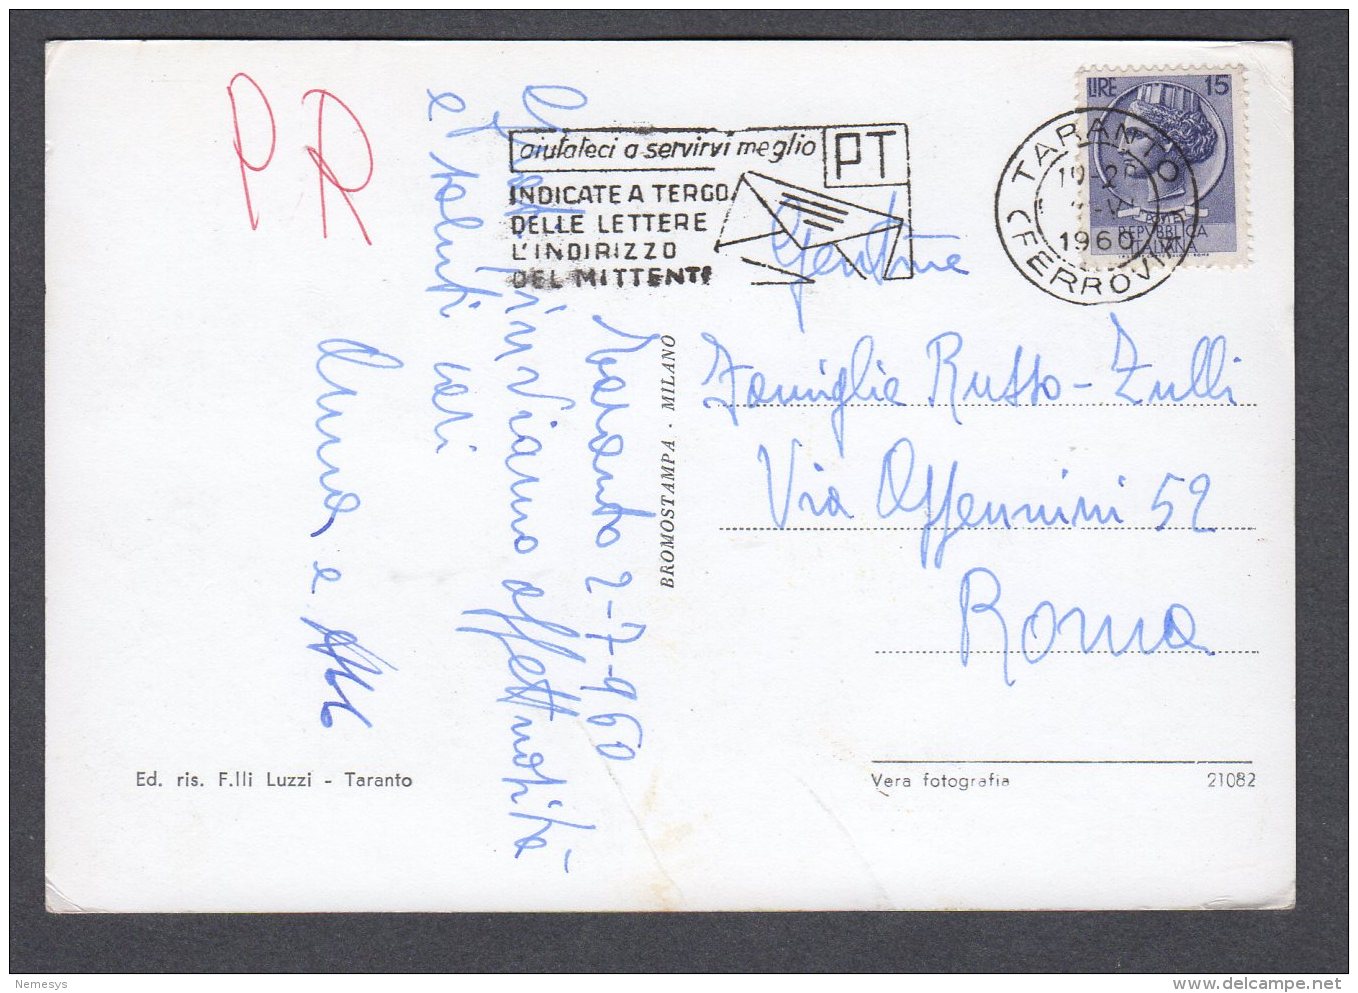 PR
aiutateci a servirvi meglio
PT
INDICATE A TERGO
DELLE LETTERE
L'INDIRIZZO
DEL MITTENTE
LIRE 15
REPVBBLICA
ITALIANA
TARANTO
19-2
1960
FERROVIA
Gent.me
Famiglia Russo-Zulli
Via Offennini 52
Roma
Taranto 2-7-960
inviamo affettuosità
e saluti cari
Anna e
BROMOSTAMPA · MILANO
Ed. ris. F.lli Luzzi - Taranto
Vera fotografia
21082
Nemesys
delcampe.net